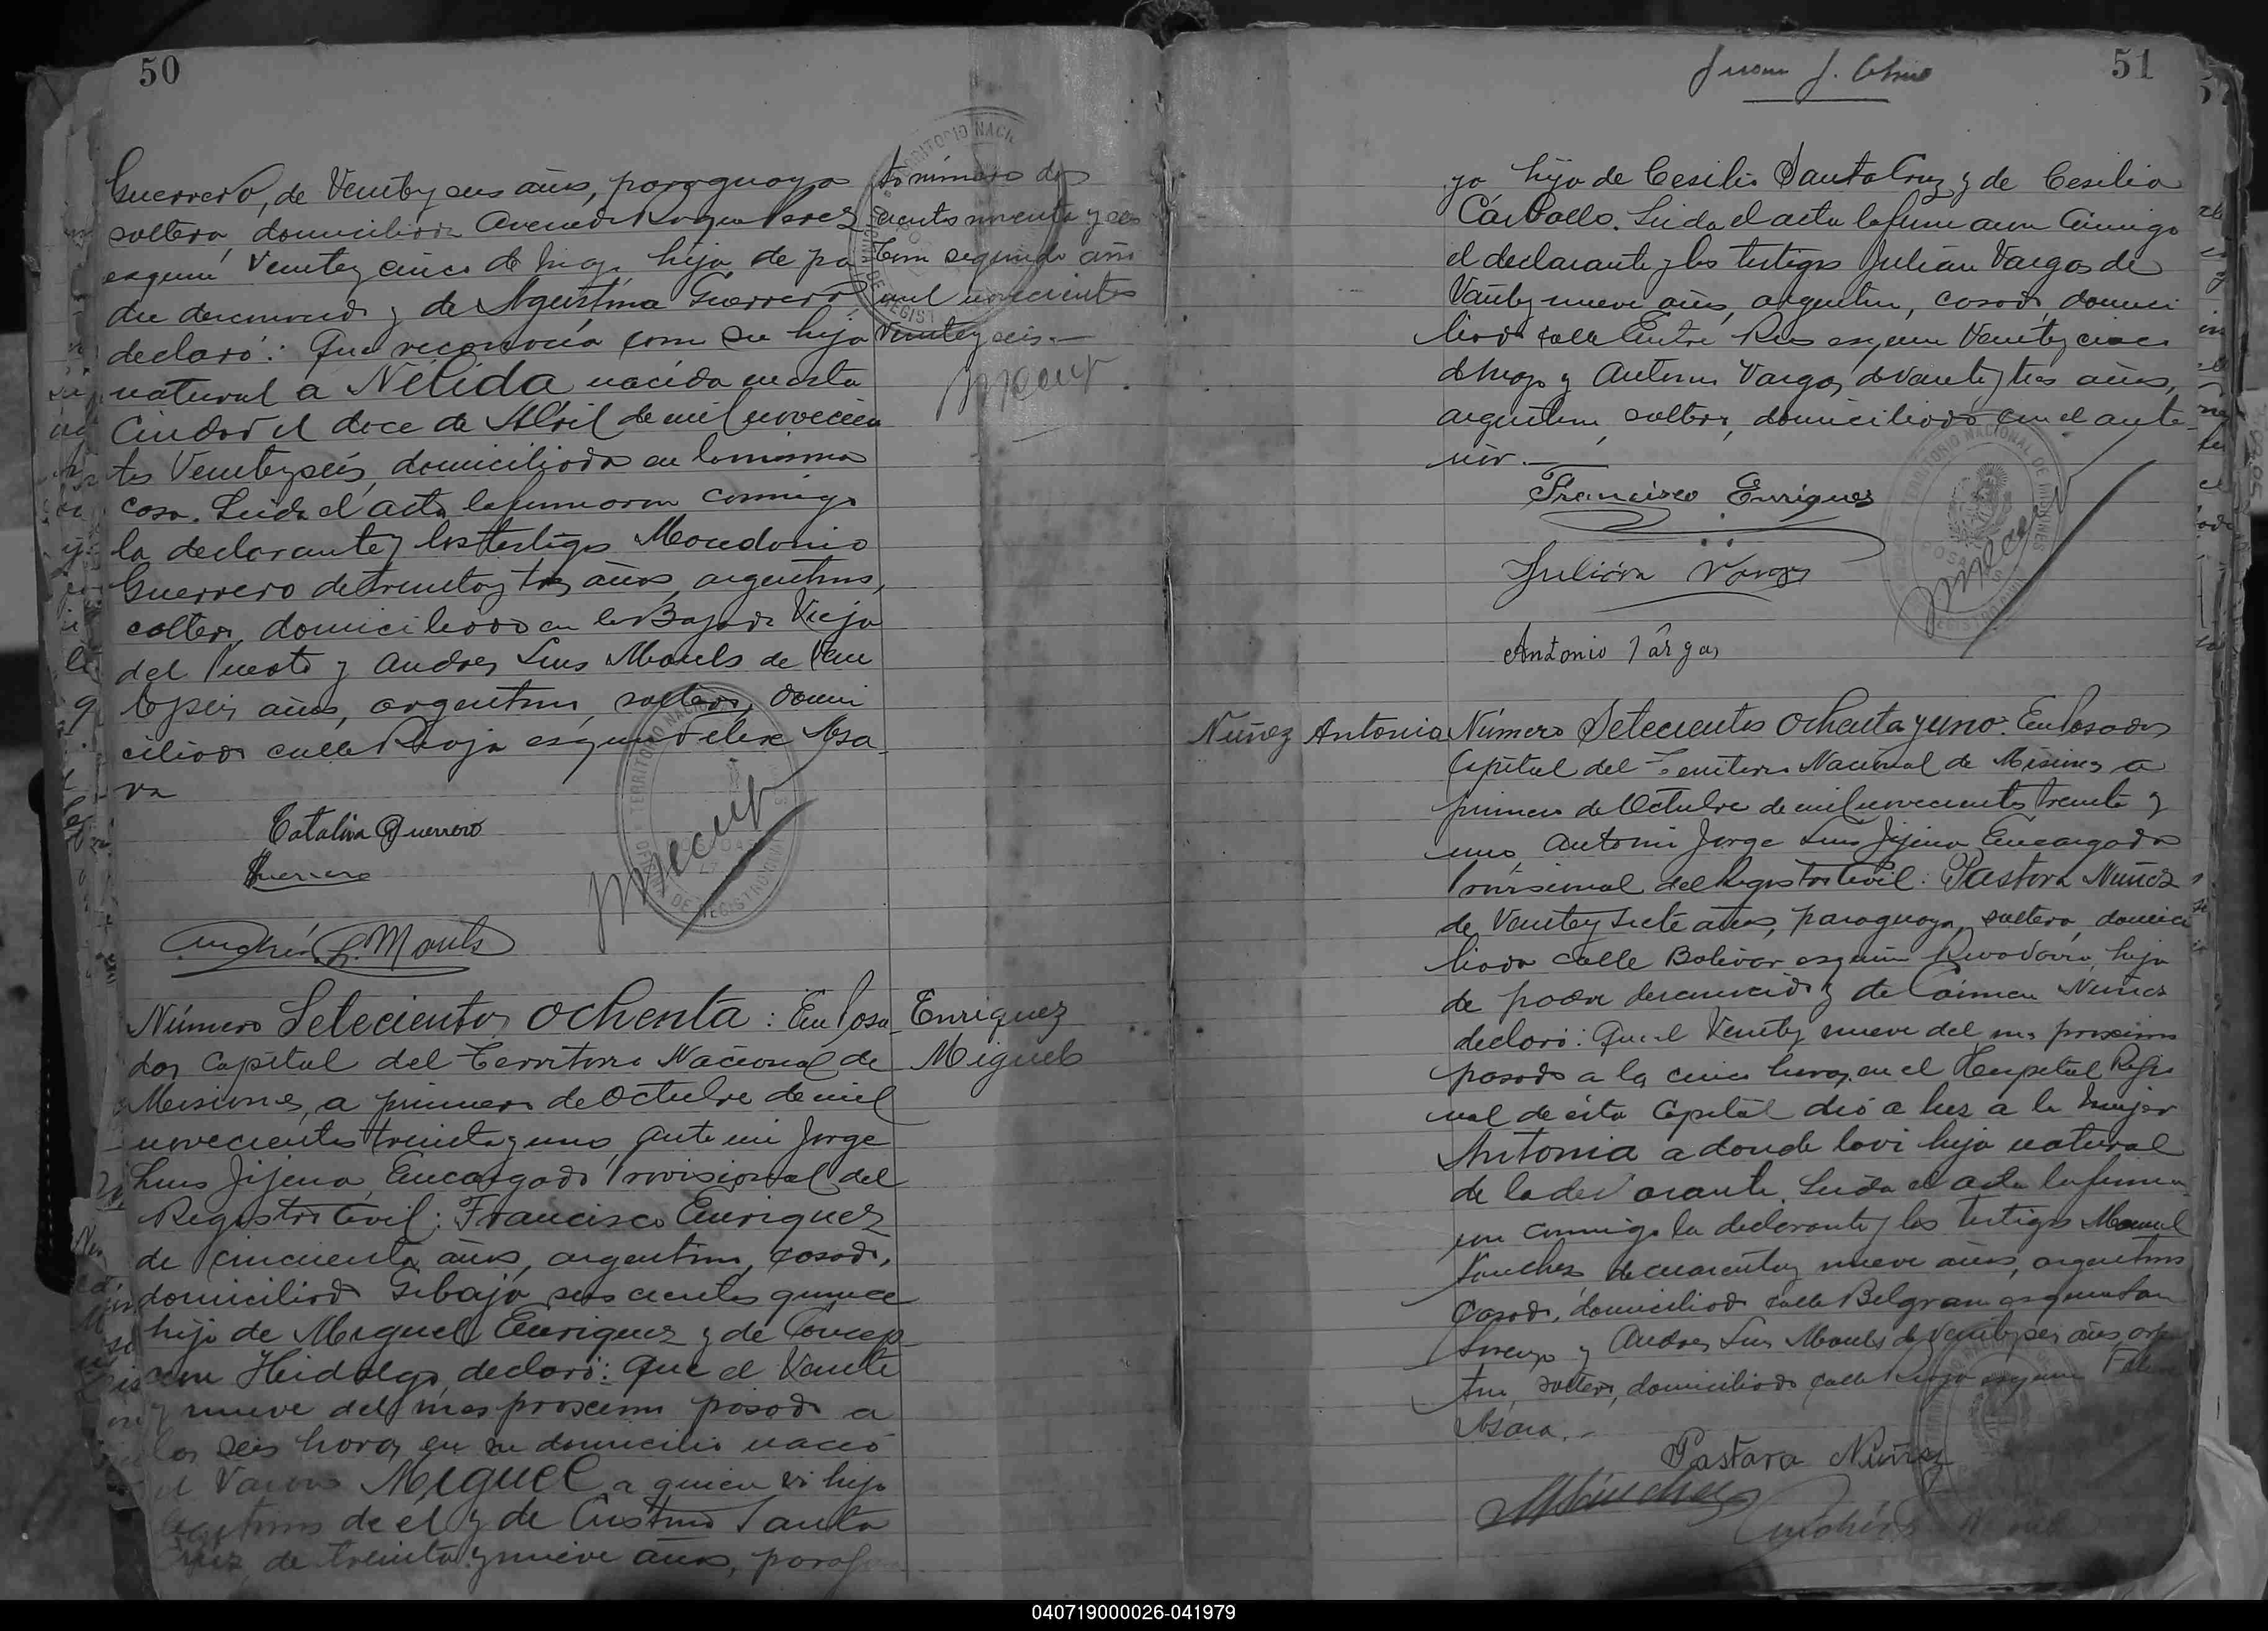 50
Guerrero, de Veintey seis años, paraguaya
soltera, domiciliada Avenida Roque Perez
esquina Veintey cinco de Mayo, hija de pa
dre desconocido y de Agustina Guerrero
declaró: Que reconocía como su hija
natural a Nélida, nacida en esta
Ciudad el doce de Abril de mil novecien
tos Veinteyseis, domiciliada en la misma
casa. Leida el acta la firmaron conmigo
la declarante y los testigos Macedonio
Guerrero de treintay tres años, argentino,
soltero, domiciliado en la Bajada Vieja
del Puerto y Andres Luis Mouls de Vein
teyseis años, argentino, soltero, domi
ciliado calle Rioja esquina Felix Asa-
ra
to número dos
cientos noventa y seis
tomo segundo año
mil novecientos
Veinteyseis.—
Catalina Guerrero
Guerrero
Andrés L. Mouls
Número Setecientos ochenta: En Posa-
das Capital del Territorio Nacional de
Misiones, a primero de Octubre de mil
novecientos treinta y uno, ante mi Jorge
Luis Jijena, Encargado Provisional del
Registro Civil: Francisco Enriquez
de cincuenta años, argentino, casado,
domiciliado Gibaja seiscientos quince
hijo de Miguel Enriquez y de Concep-
cion Hidalgo, declaró: Que el Veinte
y nueve del mes proximo pasado a
las seis horas, en su domicilio nació
el Varon Miguel a quien vi hijo
legitimo de él y de Cristina Santa
Cruz, de treinta y nueve años, parag
Enriquez
Miguel
51
Juan J.
ya hija de Cesilio Santa Cruz y de Cesilia
Carballo. Leida el acta la firmaron conmigo
el declarante y los testigos Julián Vargas de
Veintey nueve años, argentino, casado, domici
liado calle Entre Rios esquina Veintey cinco
de Mayo y Antonio Vargas, de Veintey tres años,
argentino, soltero, domiciliado con el ante-
rior.—
Francisco Enriquez
Julián Vargas
Antonio Várgas
Nuñez Antonia
Número Setecientos ochenta y uno. En Posadas
Capital del Territorio Nacional de Misiones a
primero de Octubre de mil novecientos treinta y
uno, ante mi Jorge Luis Jijena Encargado
Provisional del Registro Civil: Pastora Nuñez
de Veintey siete años, paraguaya, soltera, domici
liada calle Bolivar esquina Rivadavia, hija
de padre desconocido y de Cármen Nuñez
declaró: Que el Veintey nueve del mes proximo
pasado a las cinco horas, en el Hospital Regio
nal de ésta Capital dió a luz a la mujer
Antonia a donde la vi hija natural
de la declarante. Leida el acta la firma
ron conmigo la declarante y los testigos Manuel
Sanchez de cuarentay nueve años, argentino
casado, domiciliado calle Belgrano esquina San
Lorenzo y Andres Luis Mouls de Veinteyseis años, argen
tino, soltero, domiciliado calle Rioja esquina Felix
Asara.—
Pastora Nuñez
MSánchez
Andrés L. Mouls
040719000026-041979